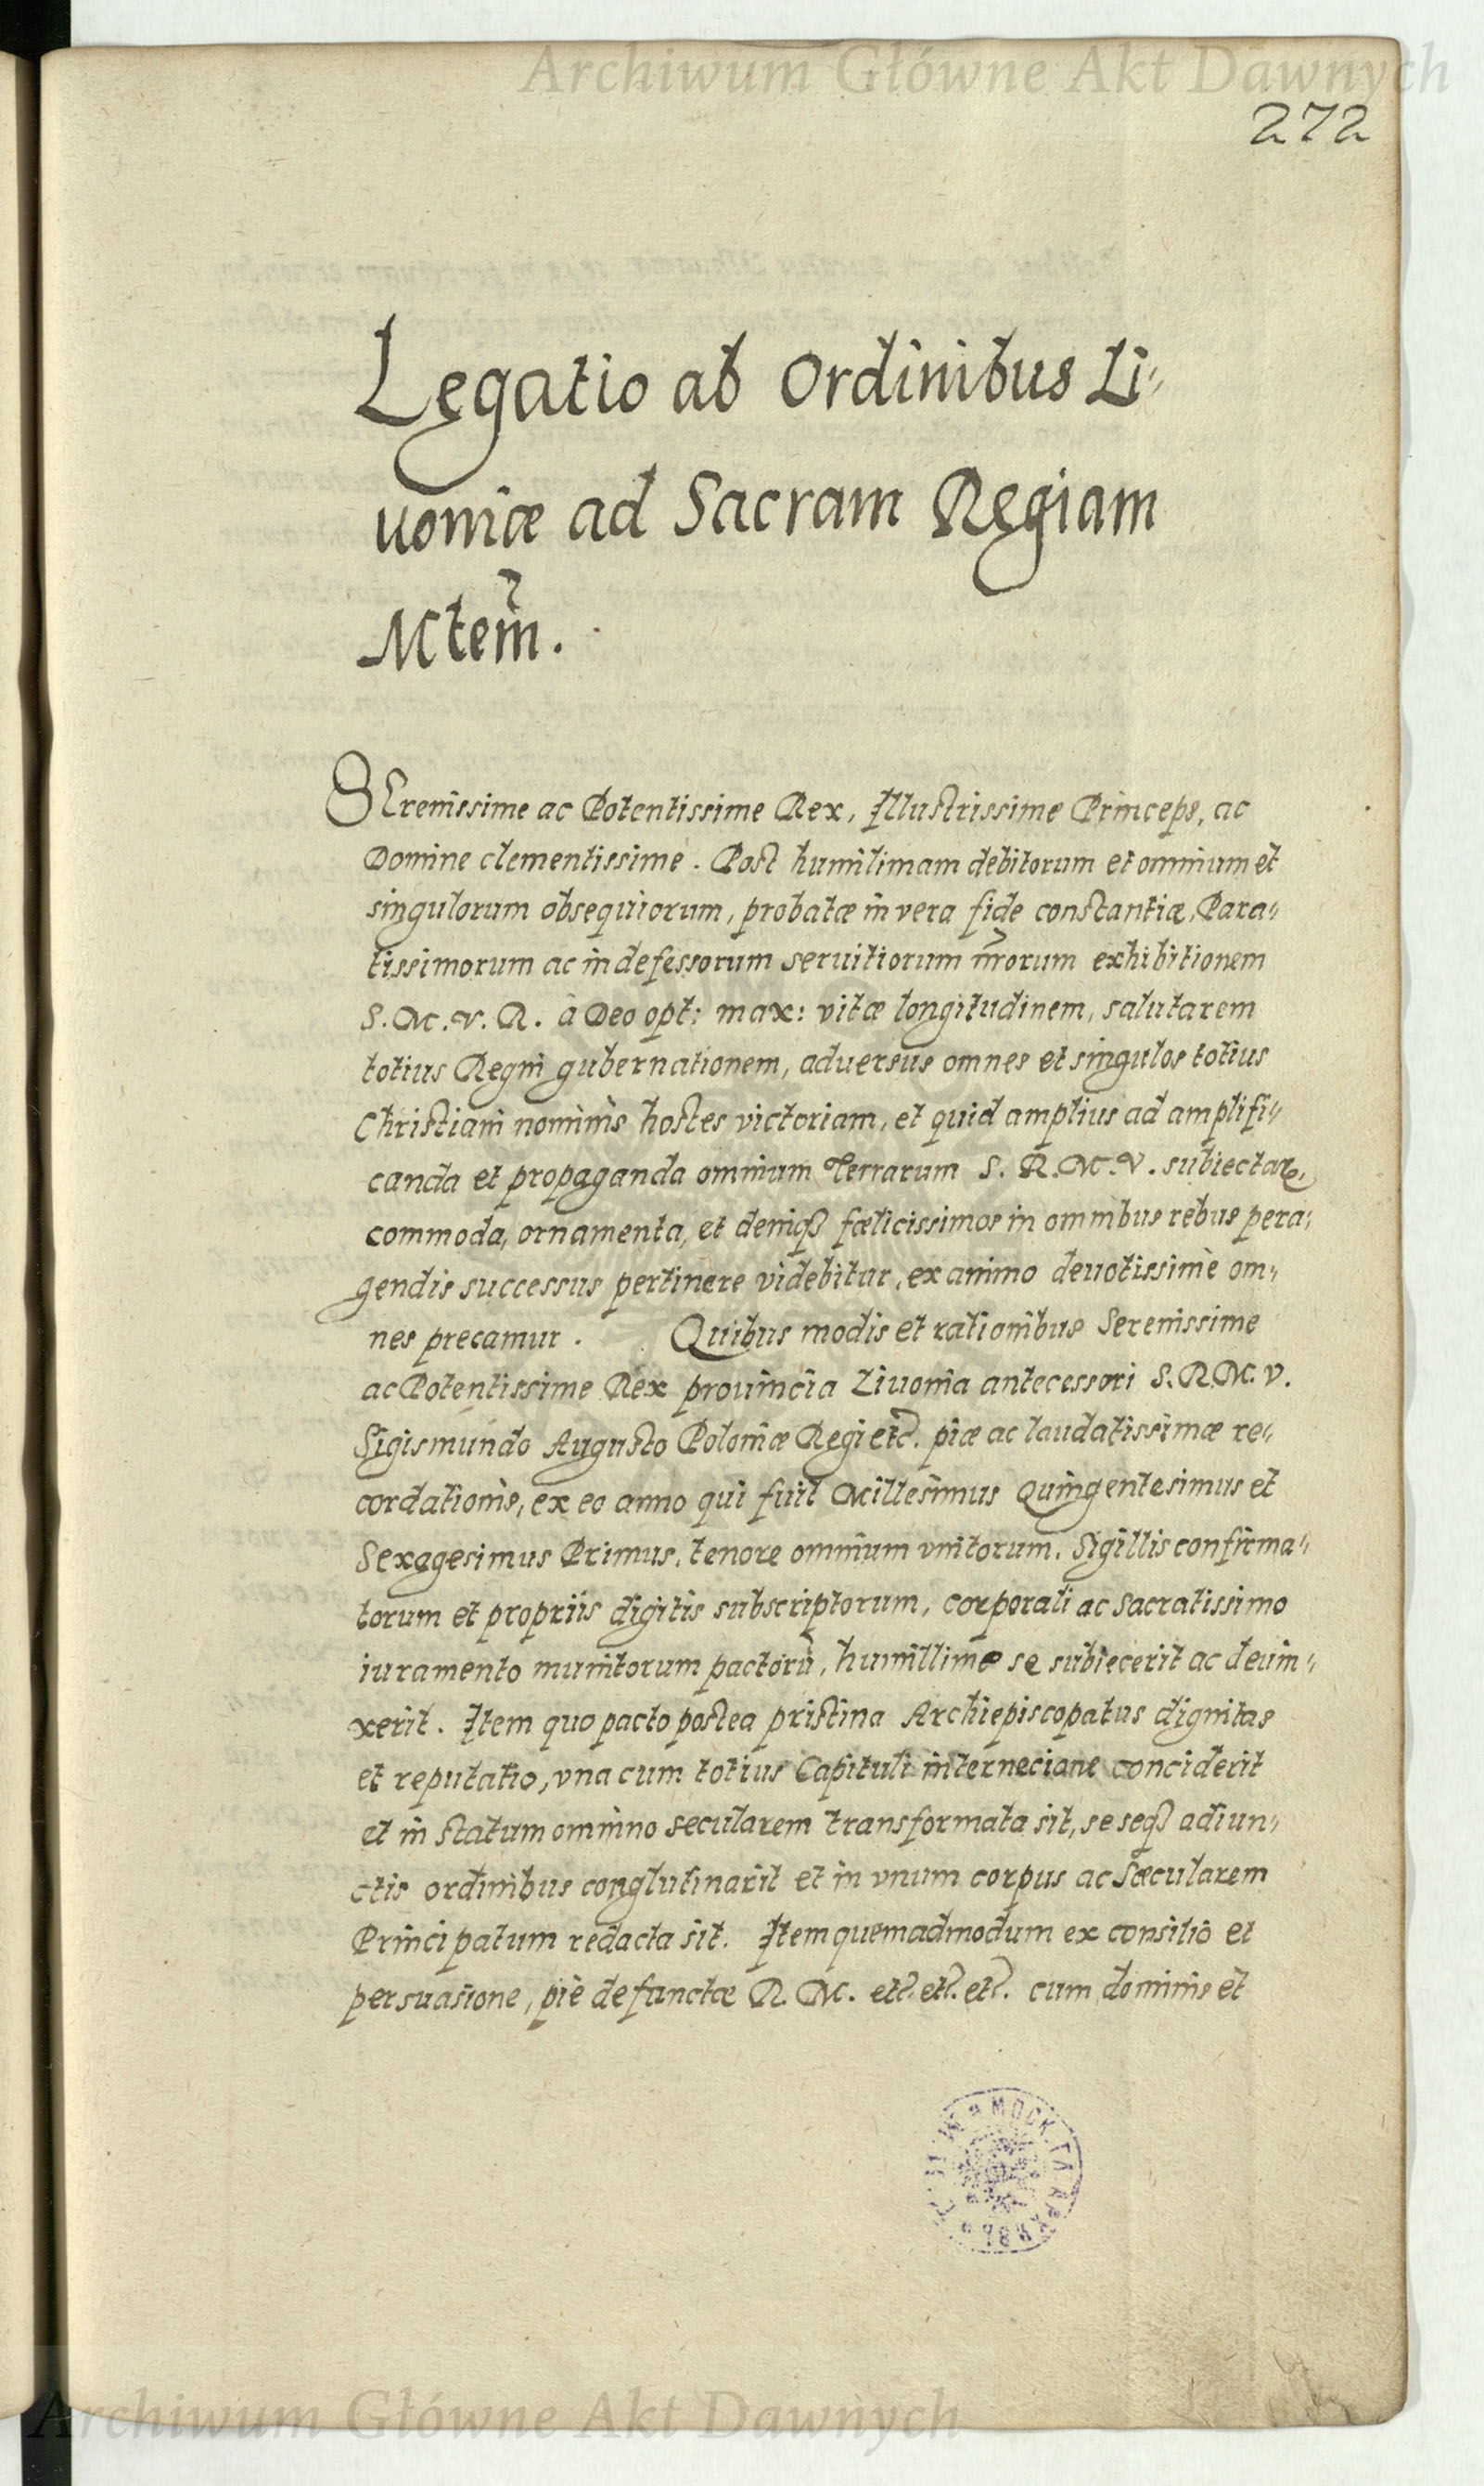 Archiwum Główne Akt Dawnych
272
Legatio ab Ordinibus Li-
uoniæ ad Sacram Regiam
Mtem̃.
SErenissime ac Potentissime Rex, Illustrissime Princeps, ac
Domine clementissime. Post humilimam debitorum et omnium et
singulorum obsequiorum, probatæ in vera fide constantiæ, Para-
tissimorum ac indefessorum seruitiorum nr̃orum exhibitionem
S. M. V. R. à Deo opt: max: vitæ longitudinem, salutarem
totius Regni gubernationem, aduersus omnes et singulos totius
Christiani nominis hostes victoriam, et quid amplius ad amplifi-
canda et propaganda omnium Terrarum S. R. M. V. subiectarꝫ,
commoda, ornamenta, et deniqꝫ fœlicissimos in omnibus rebus pera-
gendis successus pertinere videbitur, ex animo deuotissimè om-
nes precamur. Quibus modis et rationibus Serenissime
ac Potentissime Rex prouincia Liuonia antecessori S. R. M. V.
Sigismundo Augusto Poloniæ Regi etc. piæ ac laudatissimæ re-
cordationis, ex eo anno qui fuit Millesimus Quingentesimus et
Sexagesimus Primus, tenore omnium vnitorum, Sigillis confirma-
torum et propriis digitis subscriptorum, corporali ac Sacratissimo
iuramento munitorum pactorũ, humillime se subiecerit ac deuin-
xerit. Item quo pacto postea pristina Archiepiscopatus dignitas
et reputatio, vna cum totius Capituli internecione conciderit
et in statum omnino secularem transformata sit, se seqꝫ adiun-
ctis ordinibus conglutinarit et in vnum corpus ac Sæcularem
Principatum redacta sit. Item quemadmodum ex consilio et
persuasione, piè defunctæ R. M. etc. etc. etc. cum dominis et
Archiwum Główne Akt Dawnych